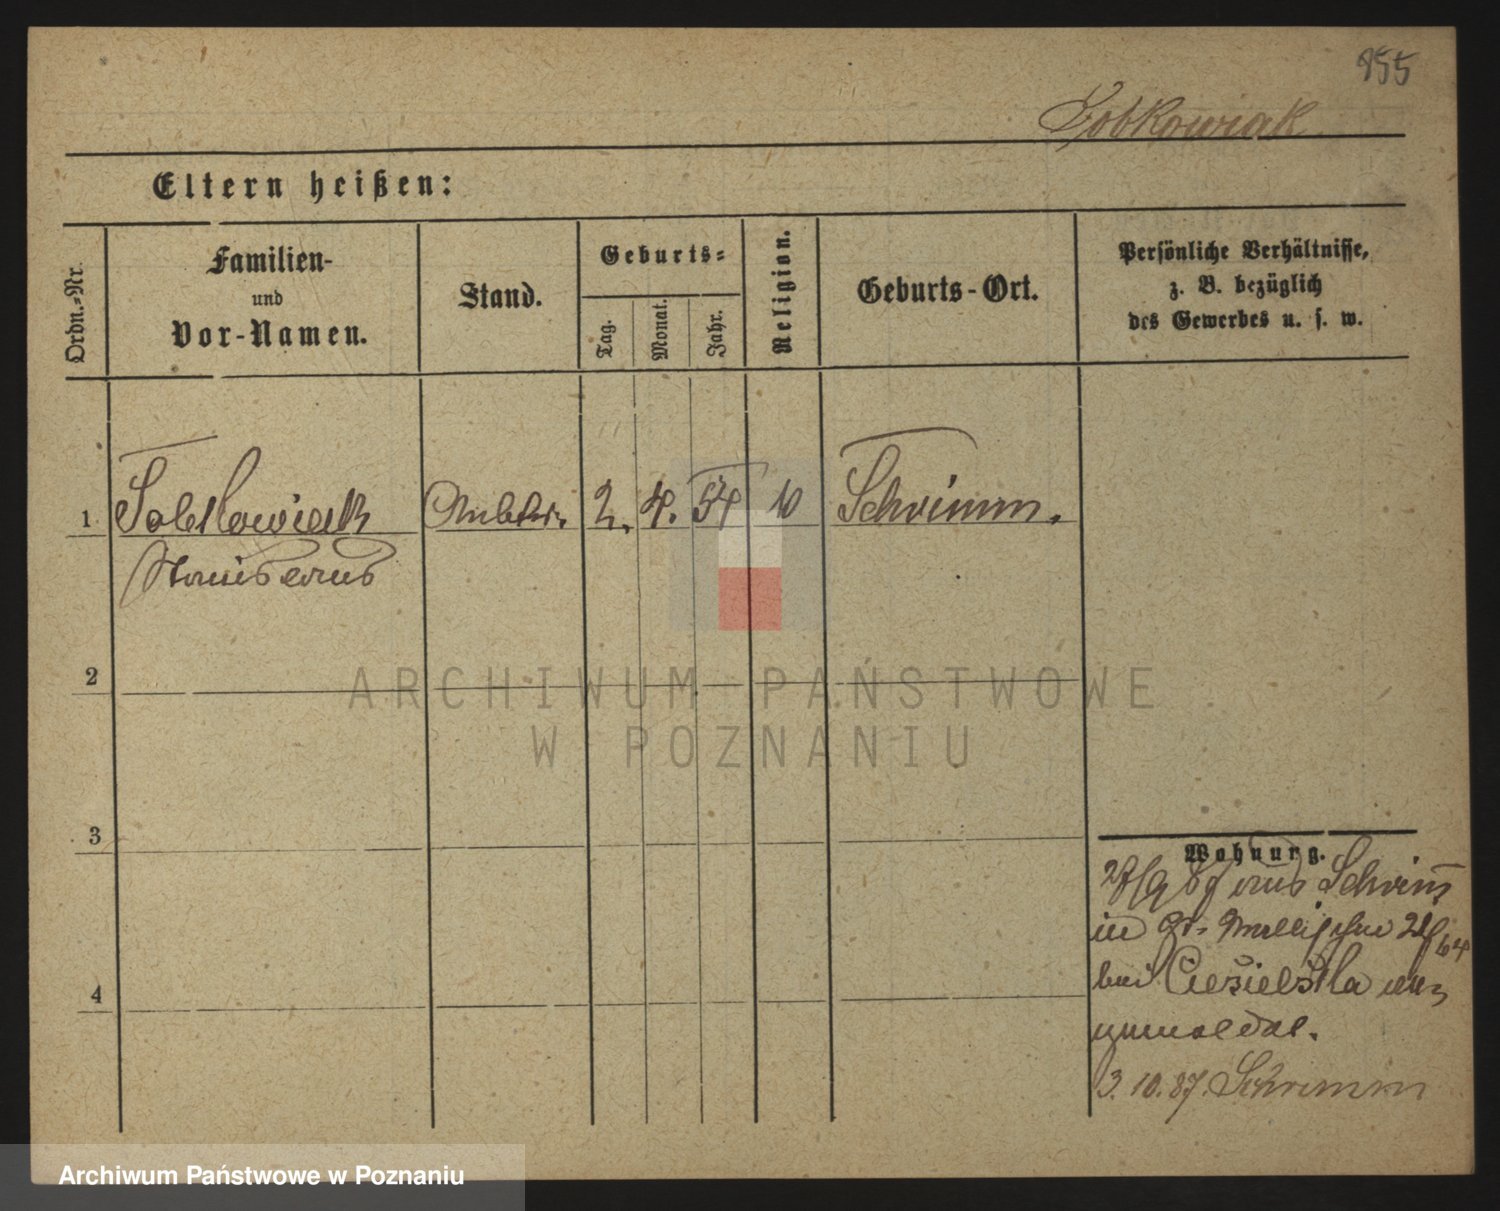 855
Sobkowiak
Eltern heißen:
Ordn.-Nr.
Familien-
und
Vor-Namen.
Stand.
Geburts-
Tag.
Monat.
Jahr.
Religion.
Geburts-Ort.
Persönliche Verhältnisse,
z. B. bezüglich
des Gewerbes u. s. w.
1 Sobkowiak Arbeiter 2. 4. 54 k Schrimm.
Stanislaus
2
3
4
Wohnung.
27/9 87 aus Schrim
in Gr.
bei Cieźielska an
gemeldet.
3.10.87. Schrimm
ARCHIWUM PAŃSTWOWE
W POZNANIU
Archiwum Państwowe w Poznaniu